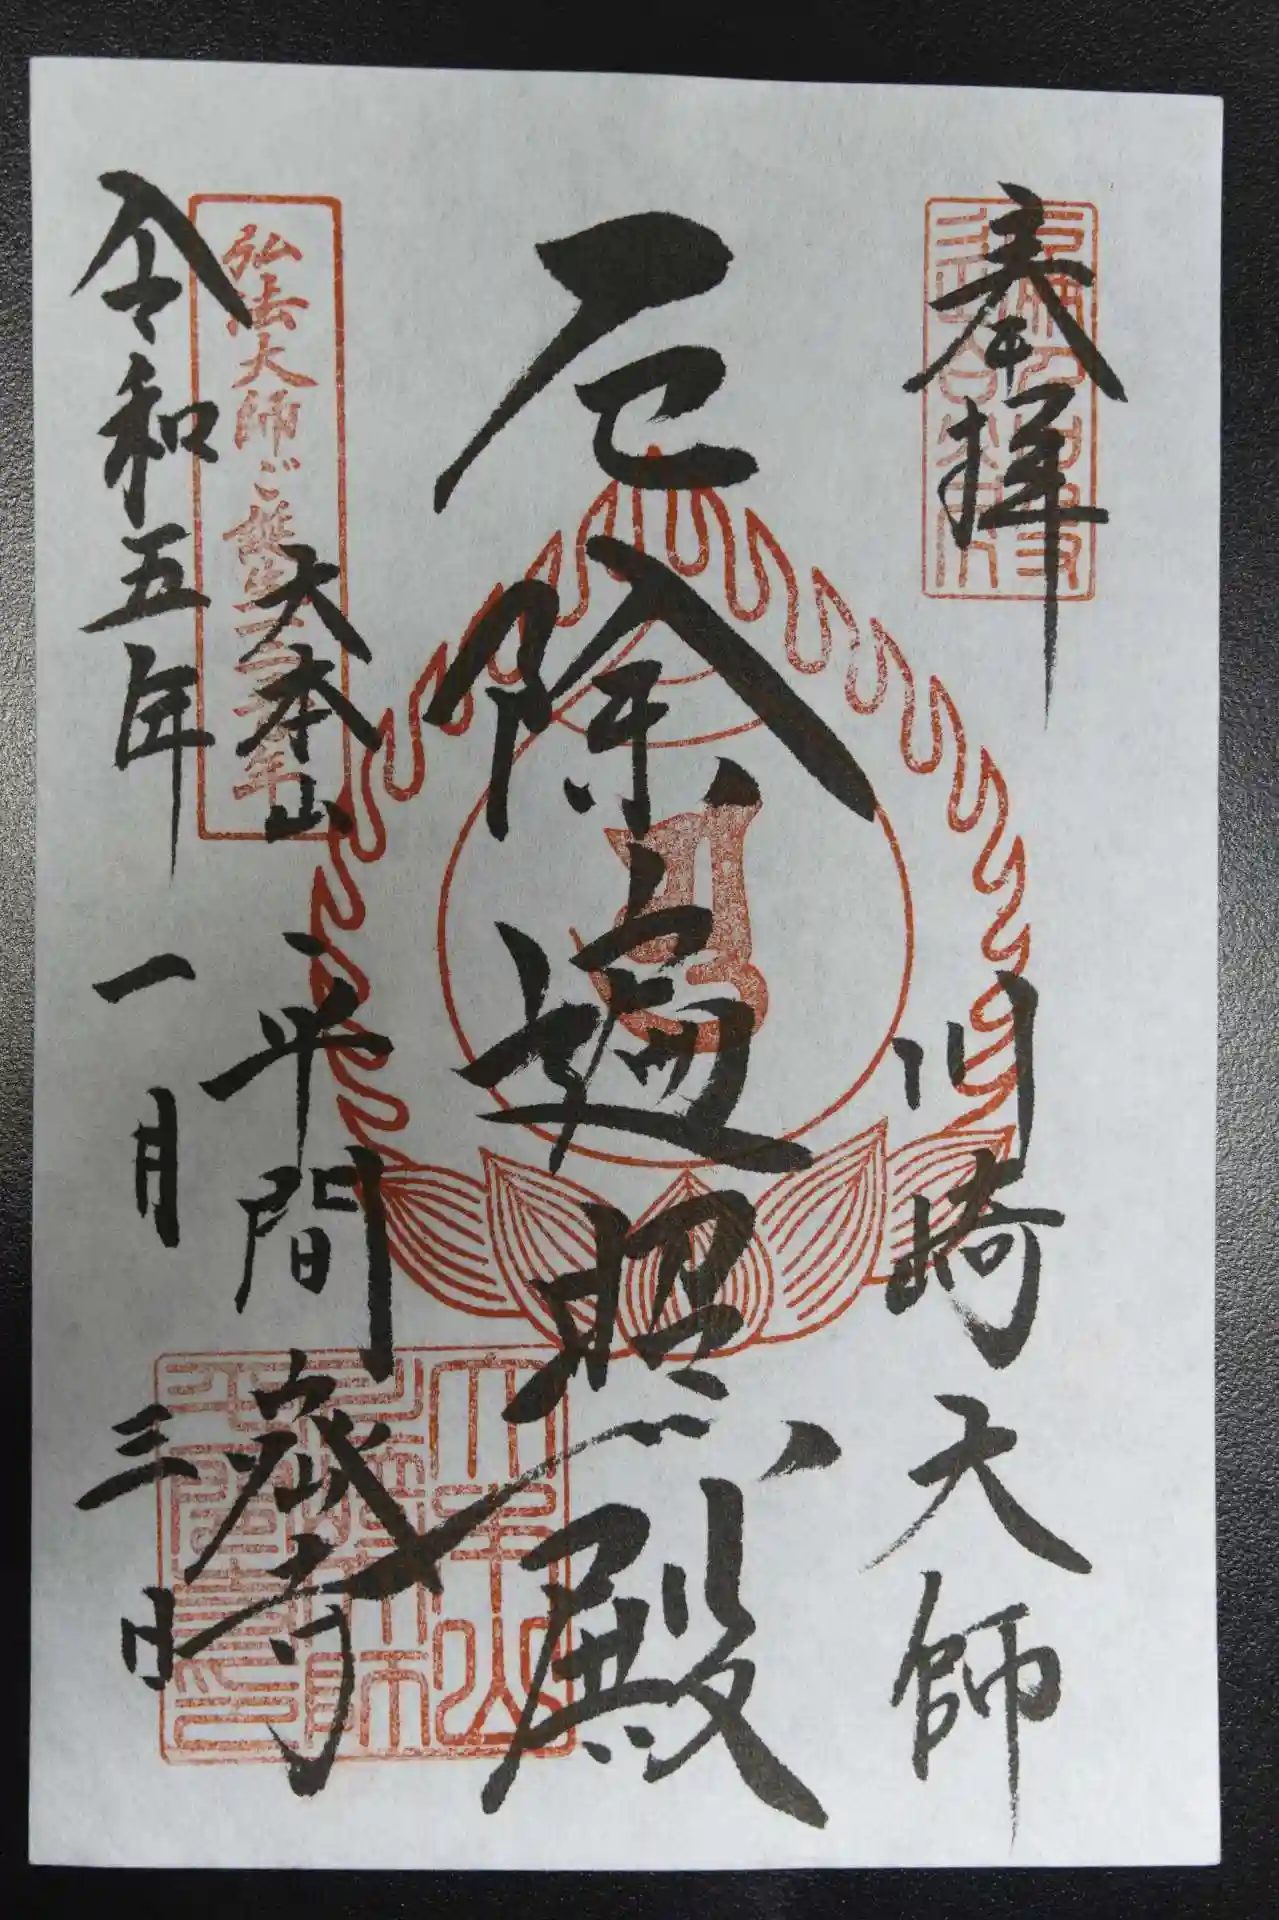 奉拝
川崎大師
厄除遍照殿
大本山
平間寺
弘法大師ご誕生
令和五年
一月
三日